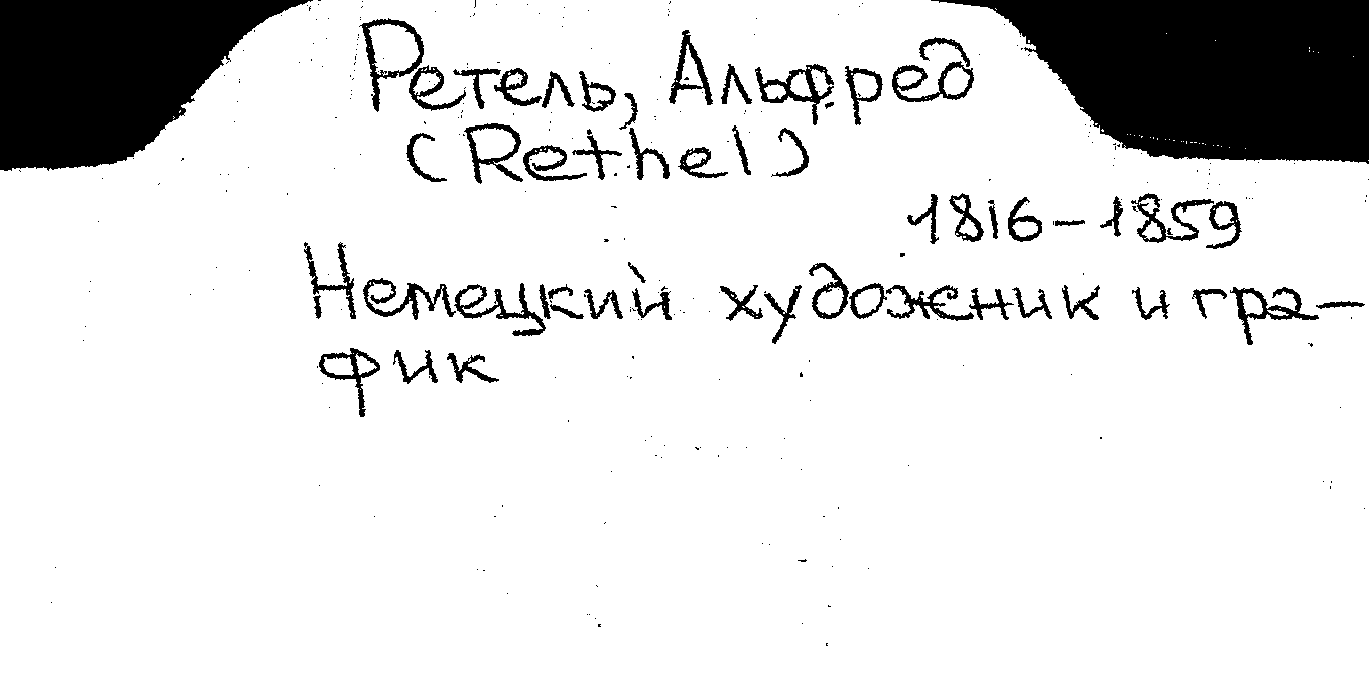 Ретель, Альфред
(Rethel)
1816-1859
Немецкий художник и гра-
фик